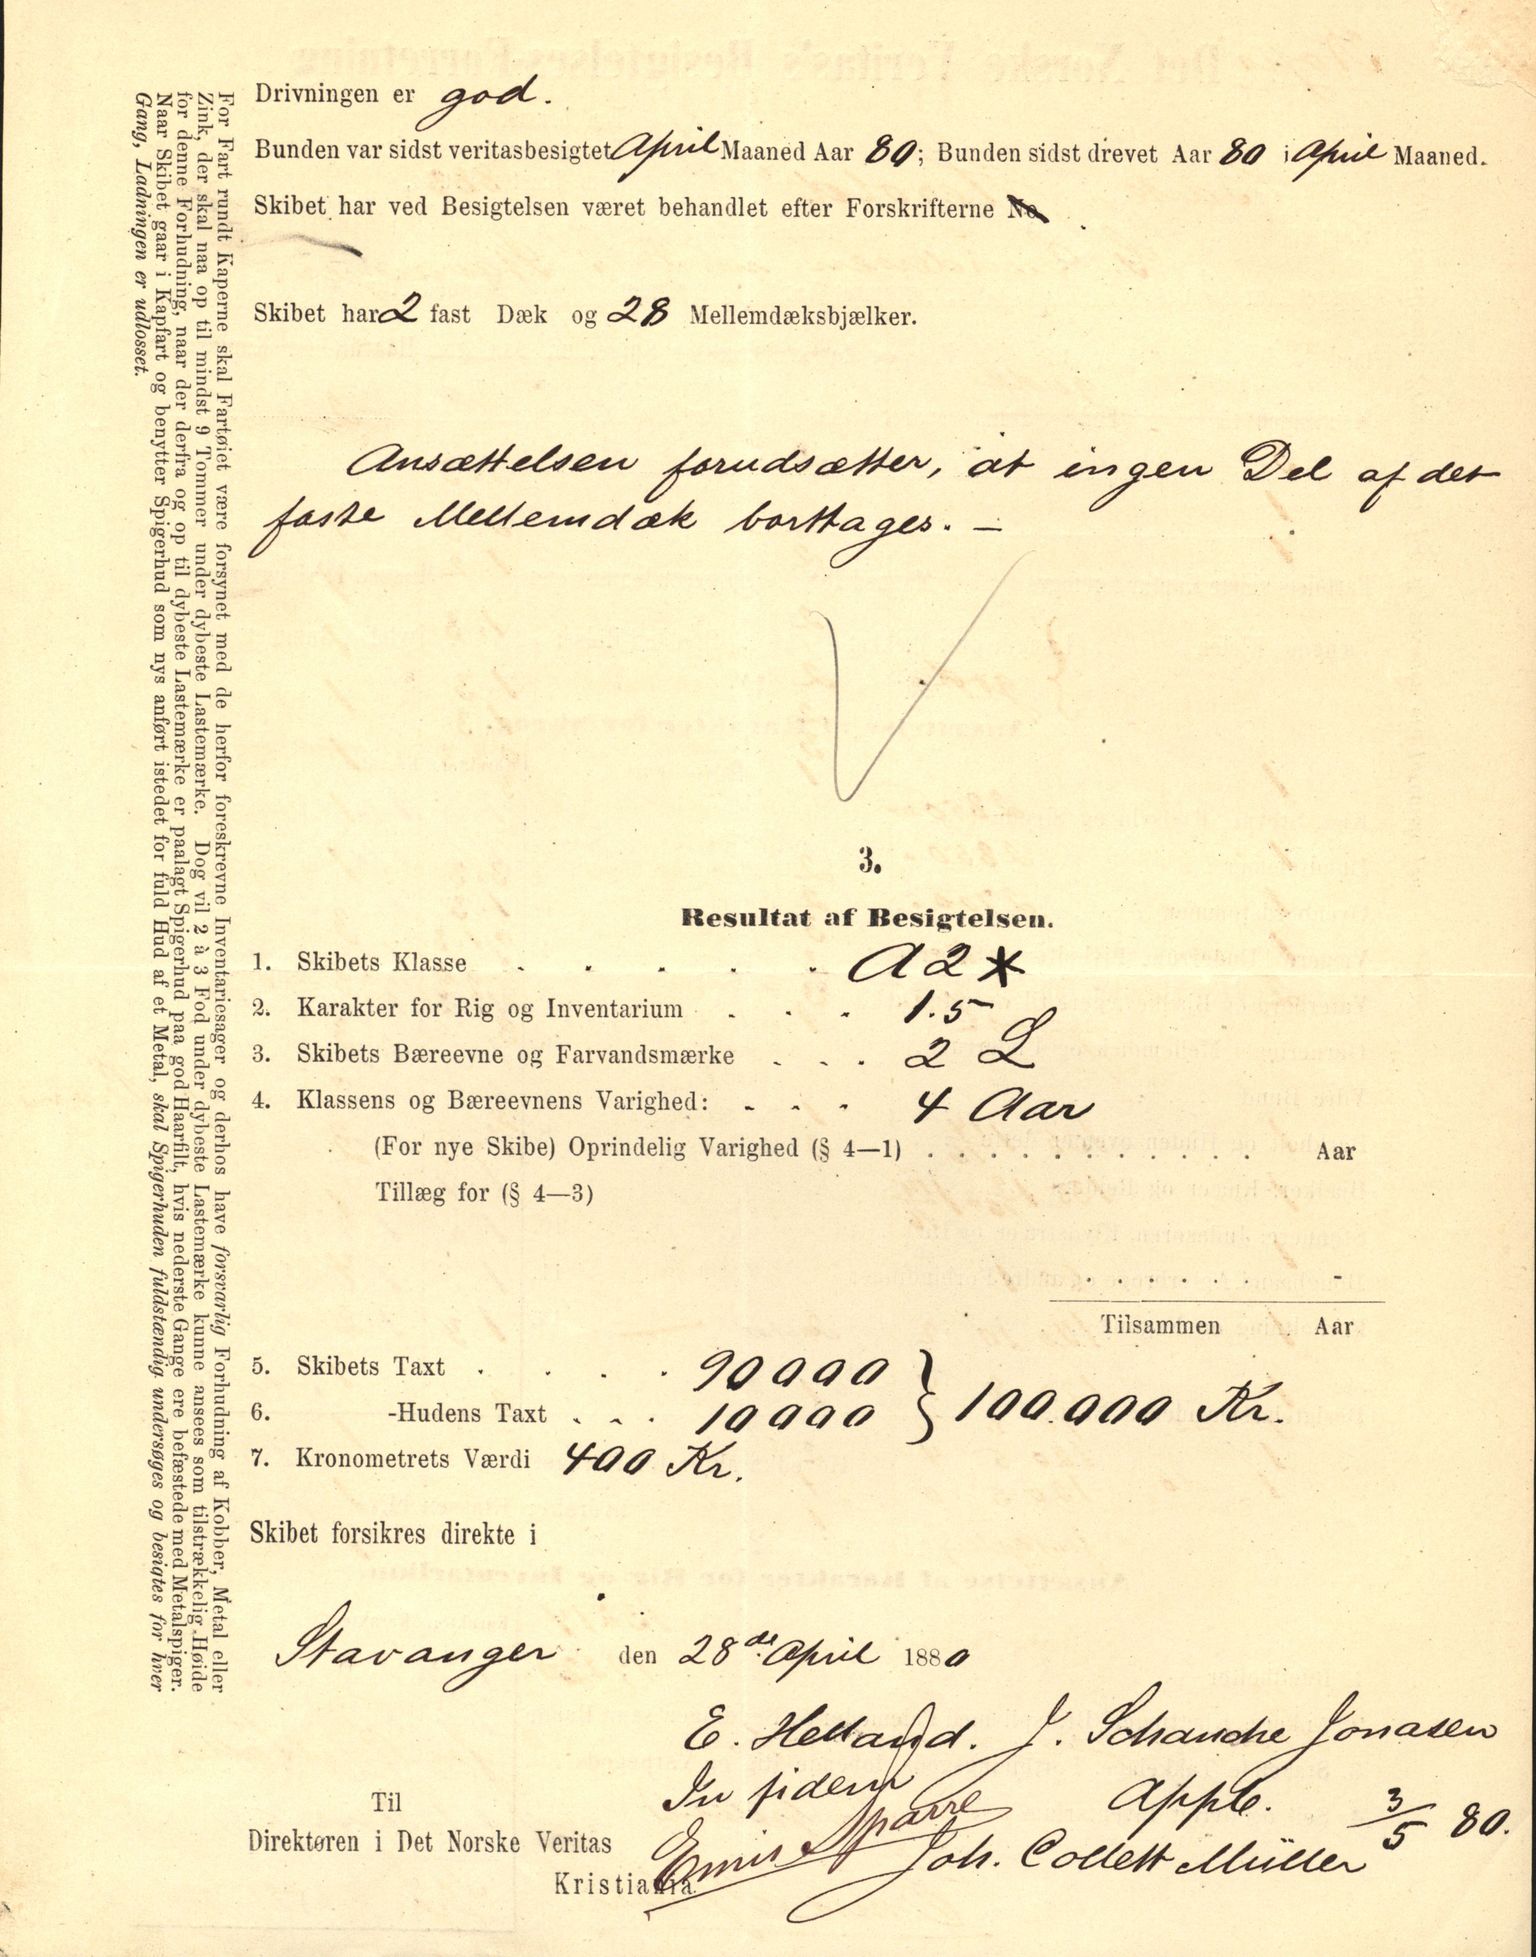 Drivningen er god.
Bunden var sidst veritasbesigtet April Maaned Aar 80; Bunden sidst drevet Aar 80 i April Maaned.
Skibet har ved Besigtelsen været behandlet efter Forskrifterne No
Skibet har 2 fast Dæk og 28 Mellemdæksbjælker.
Ansættelsen forudsætter, at ingen Del af det
faste Mellemdæk borttages. —
3.
Resultat af Besigtelsen.
1. Skibets Klasse . . . . . A 2 *
2. Karakter for Rig og Inventarium . . . 1.5
3. Skibets Bæreevne og Farvandsmærke . . . 2 L
4. Klassens og Bæreevnens Varighed: . . . 4 Aar
(For nye Skibe) Oprindelig Varighed (§ 4—1) . . . . . . . . . . . Aar
Tillæg for (§ 4—3)
. . . . . . -
Tilsammen Aar
5. Skibets Taxt . . . . 90000 } 100.000 Kr.
6. -Hudens Taxt . . . 10000
7. Kronometrets Værdi 400 Kr.
Skibet forsikres direkte i
Stavanger den 28de April 1880
E. Helland. J. Schanche Jonasen
In fidem
Appb. 3/5 80.
Emil Sparre
Joh. Collett Müller
Til
Direktøren i Det Norske Veritas
Kristiania
For Fart rundt Kaperne skal Fartøiet være forsynet med de herfor foreskrevne Inventariesager og derhos have forsvarlig Forhudning af Kobber, Metal eller
Zink, der skal naa op til mindst 9 Tommer under dybeste Lastemærke. Dog vil 2 à 3 Fod under dybeste Lastemærke kunne ansees som tilstrækkelig Høide
for denne Forhudning, naar der derfra og op til dybeste Lastemærke er paalagt Spigerhud paa god Haarfilt, hvis nederste Gange ere befæstede med Metalspiger.
Naar Skibet gaar i Kapfart og benytter Spigerhud som nys anført istedet for fuld Hud af et Metal, skal Spigerhuden fuldstændig undersøges og besigtes for hver
Gang, Ladningen er udlosset.